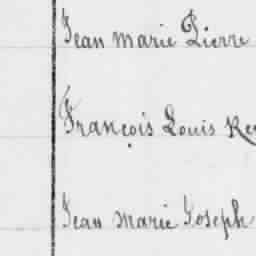 Jean Marie Pierre
François Louis
Jean Marie Joseph